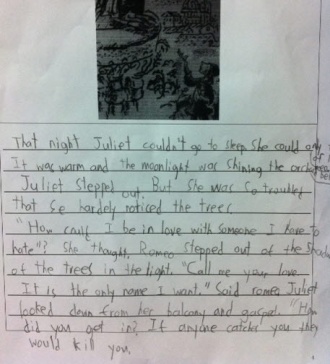 That night Juliet couldn't go to sleep she could only
It was warm and the moonlight was shining the orchard
Juliet stepped out. But she was so troubled
that se hardely noticed the trees
"How could I be in love with someone I have to
hate"? She thought. Romeo stepped out of the
of the trees in the light. "Call me your love
It is the only name I want." Said romeo Juliet
looked down from her balcony and gasped. "How
did you get in? If anyone catches you they
would kill you.